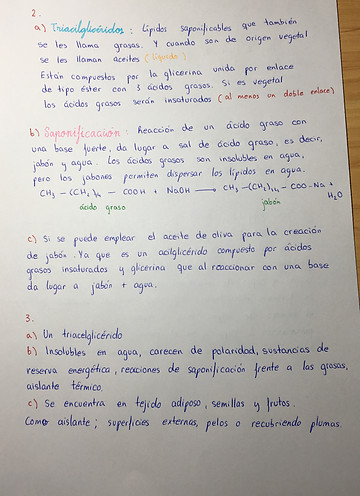 2.
a) Triacilglicéridos: Lípidos saponificables que también
se les llama grasas. Y cuando son de origen vegetal
se les llaman aceites (líquido)
Están compuestos por la glicerina unida por enlace
de tipo éster con 3 ácidos grasos. Si es vegetal
los ácidos grasos serán insaturados (al menos un doble enlace)
b) Saponificación: Reacción de un ácido graso con
una base fuerte, da lugar a sal de ácido graso, es decir,
jabón y agua. Los ácidos grasos son insolubles en agua,
pero los jabones permiten dispersar los lípidos en agua.
CH3 – (CH2)14 – COOH + NaOH → CH3 – (CH2)14 – COO - Na + H2O
ácido graso jabón
c) Si se puede emplear el aceite de oliva para la creación
de jabón. Ya que es un acilglicérido compuesto por ácidos
grasos insaturados y glicerina que al reaccionar con una base
da lugar a jabón + agua.
3.
a) Un triacelglicérido
b) Insolubles en agua, carecen de polaridad, sustancias de
reserva energética, reacciones de saponificación frente a las grasas,
aislante térmico.
c) Se encuentra en tejido adiposo, semillas y frutos.
Como aislante; superficies externas, pelos o recubriendo plumas.